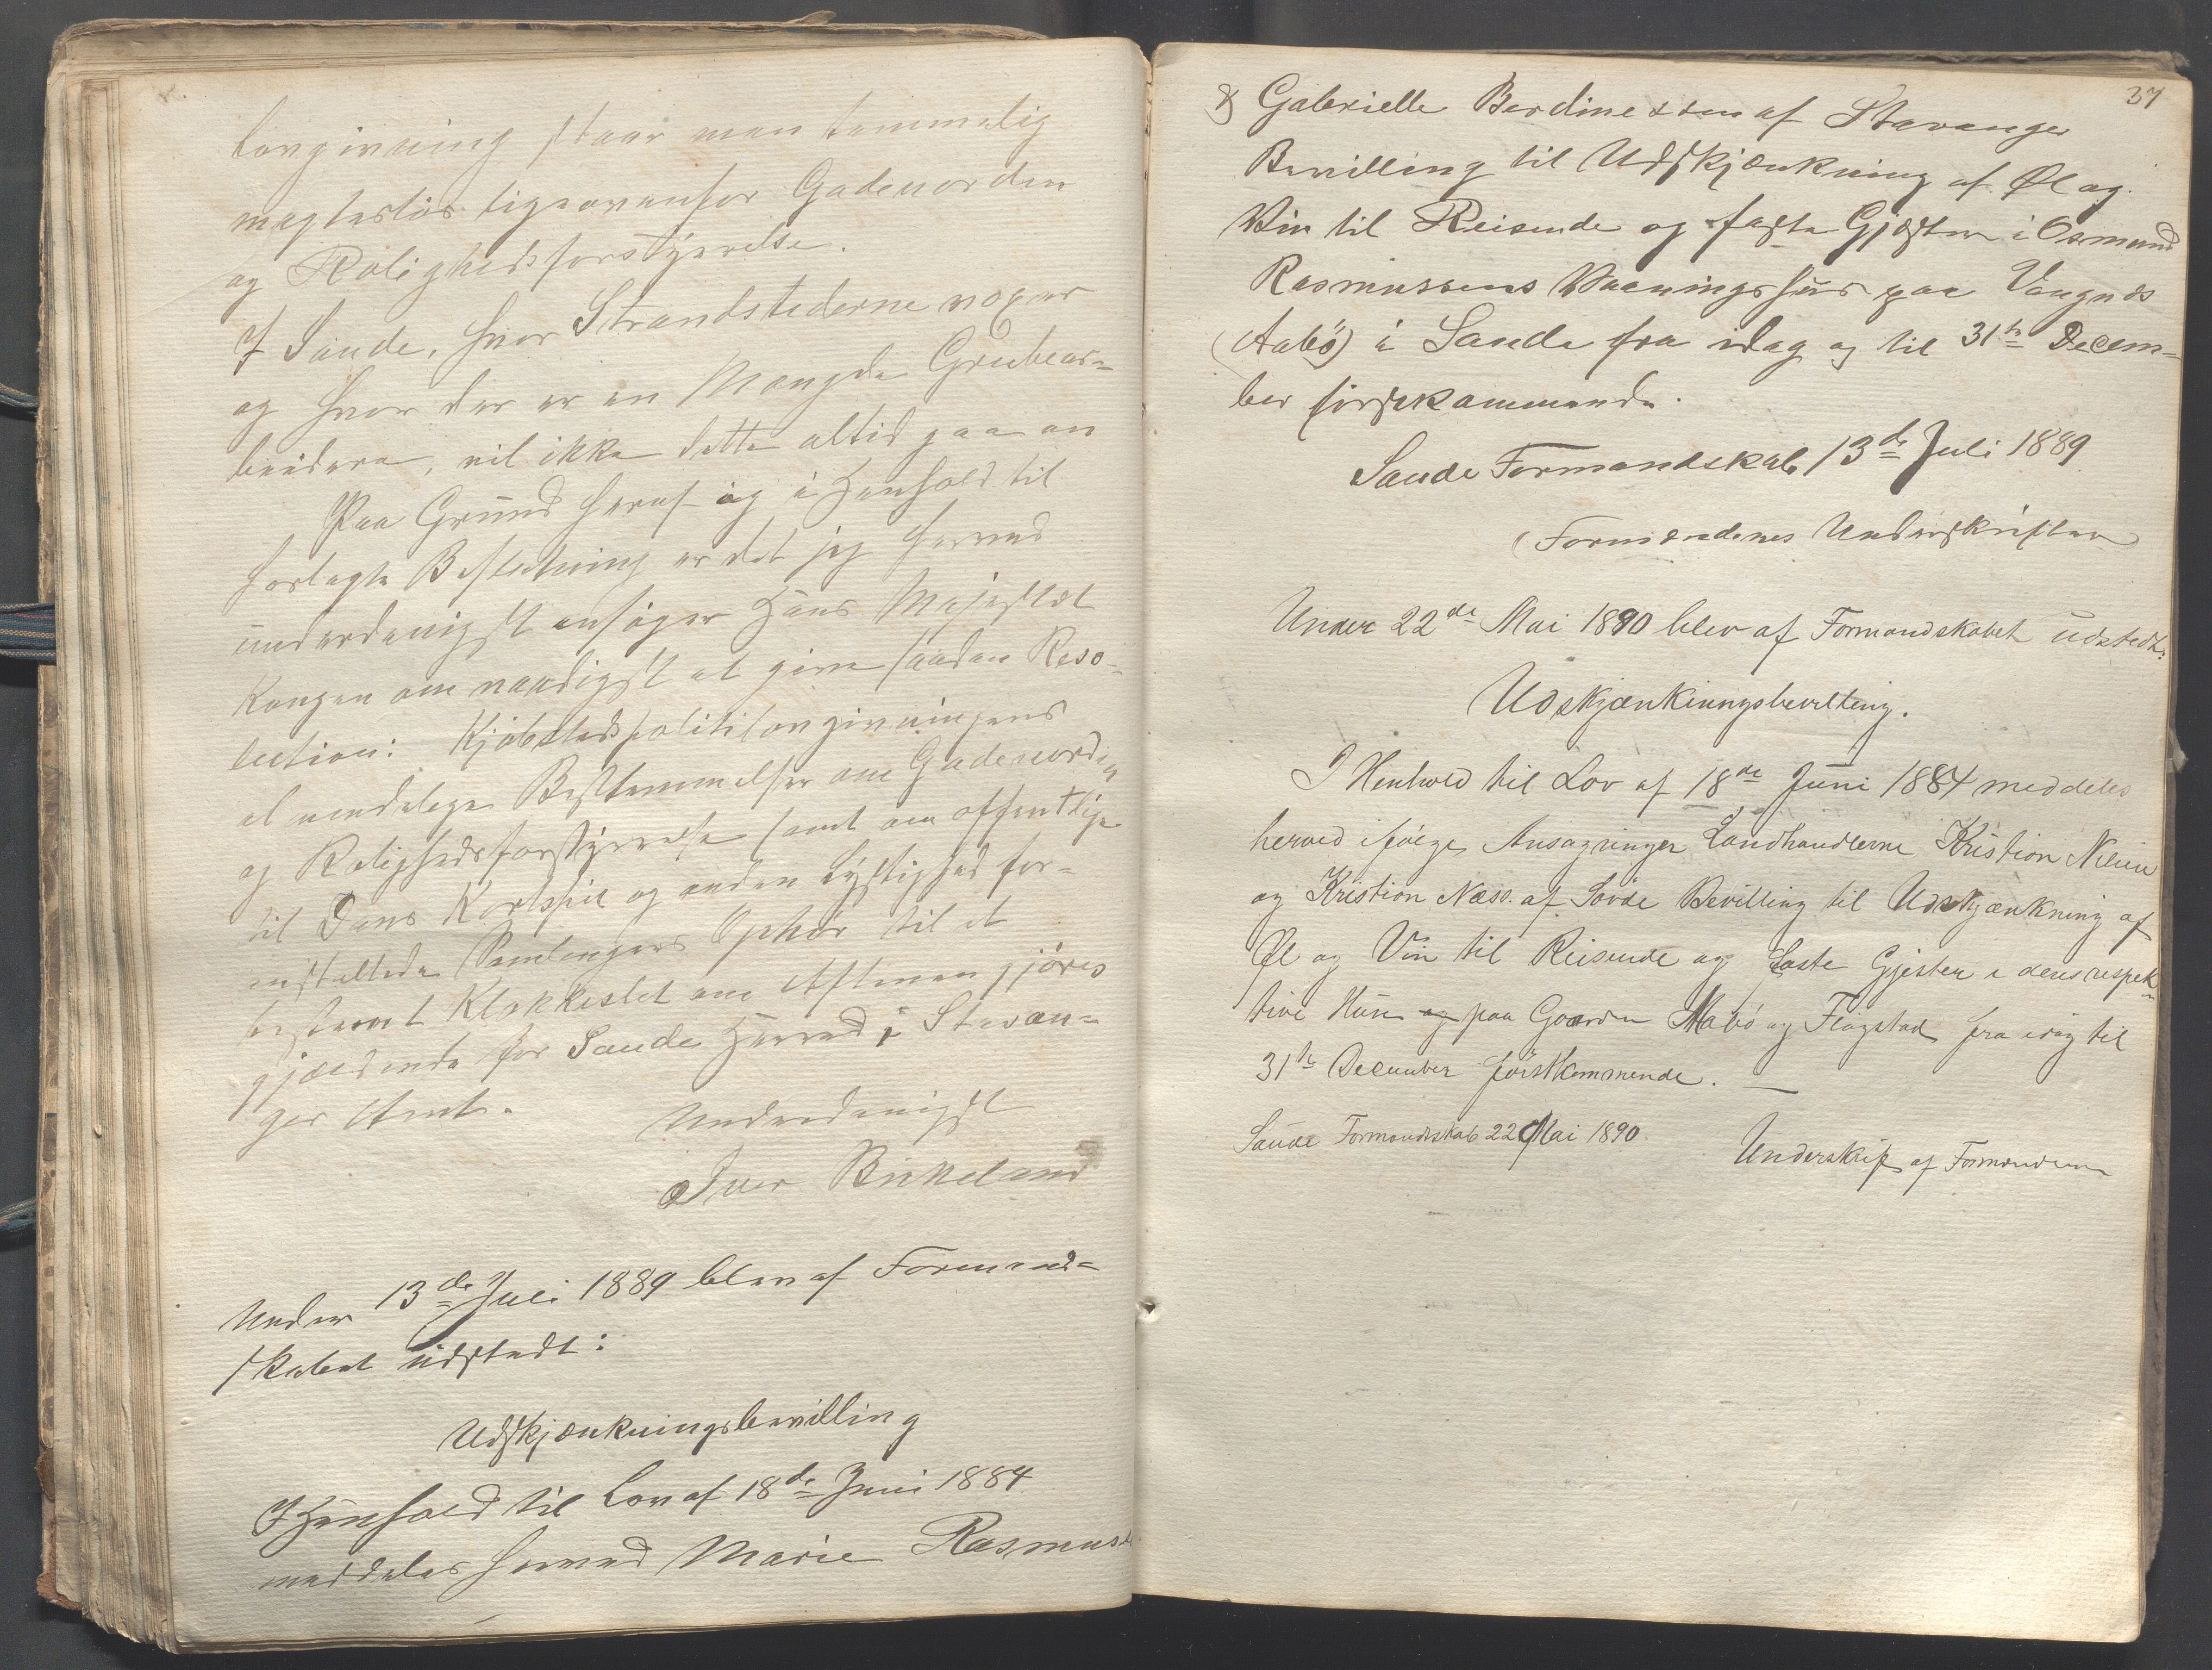 Lovgivning staar man temmelig
magteslös ligeoverfor Gadeuorden
og Rolighedsforstyrrelse.
I Saude, hvor Strandstederne voxer
og hvor der er en Mængde Grubear-
beidere, vil ikke dette altid gaa an
Paa Grund heraf og i Henhold til
forlagte Beslutning er det jeg herved
underdanigst ansöger Hans Majestæt
Kongen om naadigst at give saadan Reso-
lution: Kjöbstadspolitilovgivningens
almindelige Bestemmelser om Gadeuorden
og Rolighedsforstyrrelse samt om offentlige
til Dans Kortspil og anden Lystighed for-
anstaltede Samlingers Ophör til et
bestemt Klokkeslet om Aftenen gjöres
gjældende for Saude Herred i Stavan-
ger Amt.
Underdanigst
Iver Birkeland
Under 13de Juli 1889 blev af Formand-
skabet udstedt:
Udskjænkningsbevilling
I Henhold til Lov af 18de Juni 1884
meddeles herved Marie Rasmusd.
37
& Gabrielle Berdinesen af Stavanger
Bevilling til Udskjænkning af Øl og
Vin til Reisende og faste Gjæster i Osmund
Rasmussens Vaaningshus paa Vangnæs
(Aabö) i Saude fra idag og til 31te Decem-
ber förstkommende.
Saude Formandskab 13de Juli 1889
(Formændenes Underskrifter
Under 22de Mai 1890 blev af Formandskabet udstedt:
Udskjænkningsbevilling.
I Henhold til Lov af 18de Juni 1884 meddeles
herved ifölge Ansögninger Landhandlerne Kristian
og Kristian Næss af Sövde Bevilling til Udskjænkning af
Øl og Vin til Reisende og faste Gjester i deres respek-
tive Huse og paa Gaarden Aabö og Flogstad fra idag til
31te December förstkommende.
Saude Formandskab 22 Mai 1890.
Underskrift af Formændene